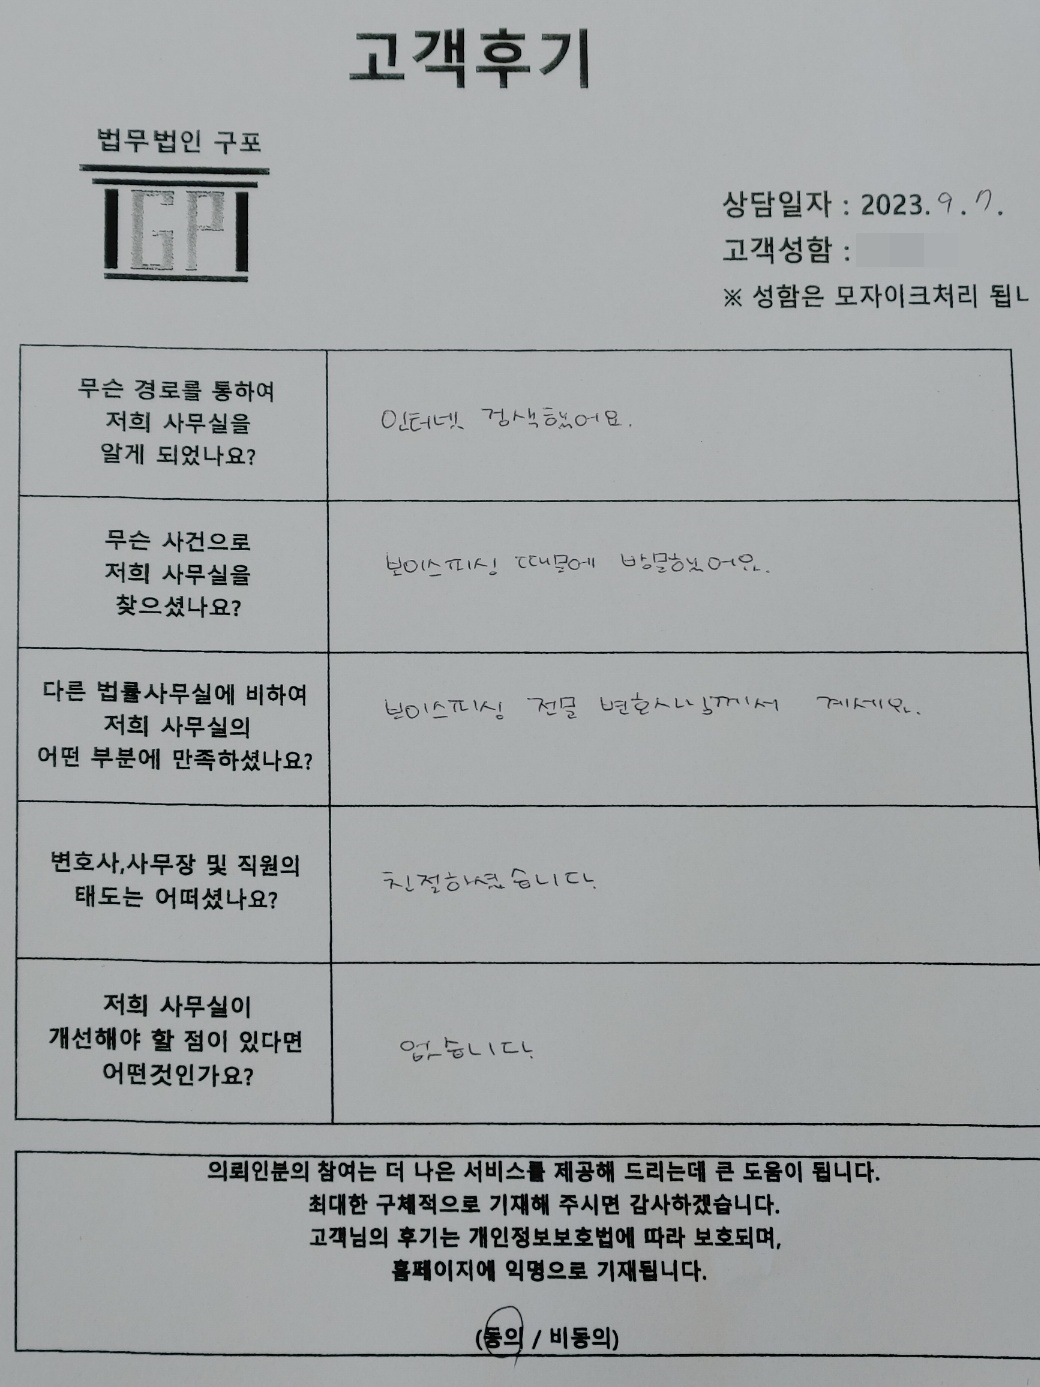 고객후기
법무법인 구포
GP
상담일자 : 2023. 9. 7.
고객성함 :
※ 성함은 모자이크처리 됩
무슨 경로를 통하여
저희 사무실을
알게 되었나요?
인터넷 검색했어요.
무슨 사건으로
저희 사무실을
찾으셨나요?
보이스피싱 때문에 방문했어요.
다른 법률사무실에 비하여
저희 사무실의
어떤 부분에 만족하셨나요?
보이스피싱 전문 변호사님께서 계세요.
변호사,사무장 및 직원의
태도는 어떠셨나요?
친절하셨습니다.
저희 사무실이
개선해야 할 점이 있다면
어떤것인가요?
없습니다.
의뢰인분의 참여는 더 나은 서비스를 제공해 드리는데 큰 도움이 됩니다.
최대한 구체적으로 기재해 주시면 감사하겠습니다.
고객님의 후기는 개인정보보호법에 따라 보호되며,
홈페이지에 익명으로 기재됩니다.
(동의 / 비동의)